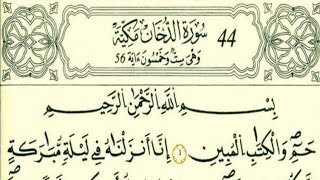 44 سُورَةُ الدُّخَانِ مَكِّيَّةٌ
وَهِيَ سِتٌّ وَخَمْسُونَ ءَايَة 56
بِسْمِ اللَّهِ الرَّحْمَٰنِ الرَّحِيمِ
حَمٓ وَالْكِتَٰبِ الْمُبِينِ ١ إِنَّا أَنزَلْنَٰهُ فِي لَيْلَةٍ مُّبَٰرَكَةٍ